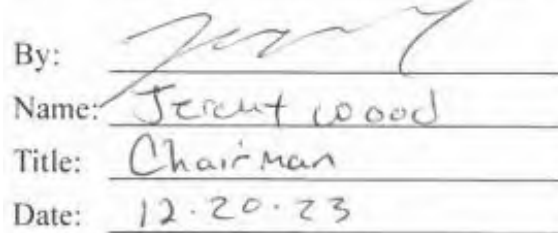 By:
Name: wood
Title: Chairman
Date: 12.20.23